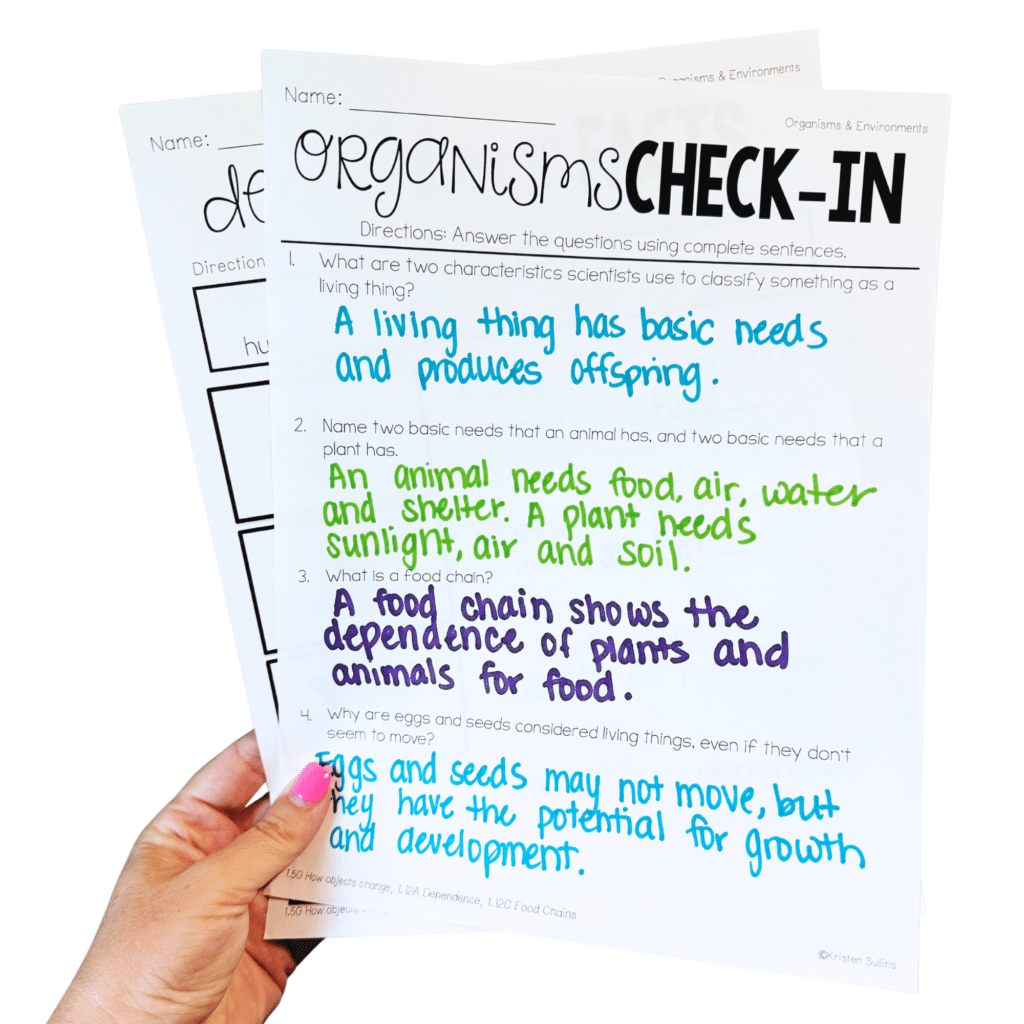 Organisms & Environments
Name:
Organisms & Environments
Name:
ORGANISMS CHECK-IN
Directions: Answer the questions using complete sentences.
Direction
hu
1. What are two characteristics scientists use to classify something as a
living thing?
A living thing has basic needs
and produces offspring.
2. Name two basic needs that an animal has, and two basic needs that a
plant has.
An animal needs food, air, water
and shelter. A plant needs
sunlight, air and soil.
3. What is a food chain?
A food chain shows the
dependence of plants and
animals for food.
4. Why are eggs and seeds considered living things, even if they don't
seem to move?
Eggs and seeds may not move, but
they have the potential for growth
and development.
1.5G How objects change, 1.12A Dependence, 1.12C Food Chains
1.5G How objec
©Kristen Sullins